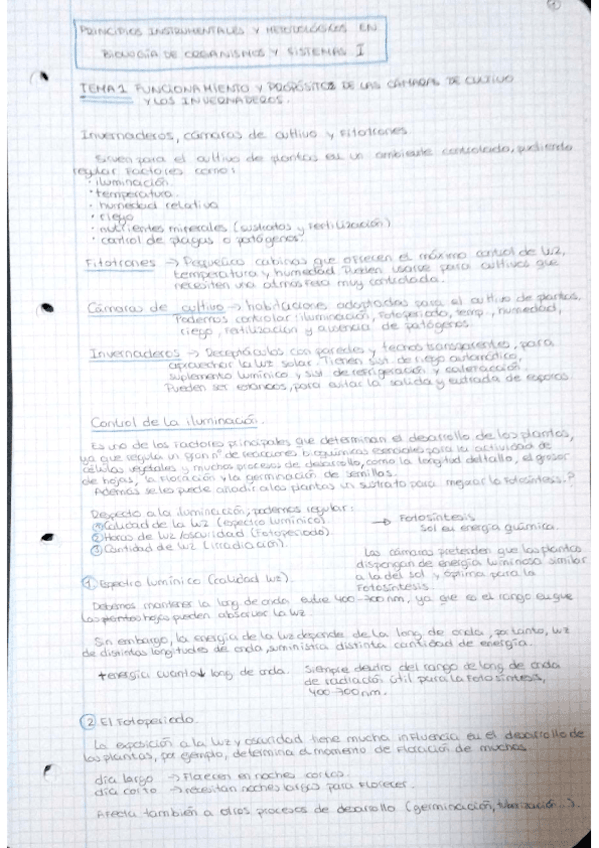 1
PRINCIPIOS INSTRUMENTALES Y METODOLÓGICOS EN
BIOLOGÍA DE ORGANISMOS Y SISTEMAS I
TEMA 1 FUNCIONAMIENTO Y PROPÓSITOS DE LAS CÁMARAS DE CULTIVO
Y LOS INVERNADEROS.
Invernaderos, cámaras de cultivo y Fitotrones
Sirven para el cultivo de plantas en un ambiente controlado, pudiendo
regular Factores como:
· iluminación
· temperatura
· humedad relativa
· riego
· nutrientes minerales (sustratos y Fertilización)
· control de plagas o patógenos.
Fitotrones → Pequeñas cabinas que ofrecen el máximo control de luz,
temperatura y humedad. Pueden usarse para cultivos que
necesiten una atmosfera muy controlada.
Cámaras de cultivo → habitaciones adaptadas para el cultivo de plantas.
Podemos controlar: iluminación, Fotoperiodo, temp., humedad,
riego, Fertilización y ausencia de patógenos.
Invernaderos → Receptáculos con paredes y techos transparentes, para
aprovechar la luz solar. Tienen sist. de riego automático,
suplemento lumínico y sist de refrigeración y calefacción.
Pueden ser estancos, para evitar la salida y entrada de esporas
Control de la iluminación.
Es uno de los Factores principales que determinan el desarrollo de las plantas,
ya que regula un gran nº de reacciones bioquímicas esenciales para la actividad de
células vegetales y muchos procesos de desarrollo, como la longitud del tallo, el grosor
de hojas, la Floración y la germinación de semillas.
Además se les puede añadir a las plantas un sustrato para mejorar la Fotosíntesis.?
Respecto a la iluminación, podemos regular:
① Calidad de la luz (espectro lumínico).
② Horas de luz/oscuridad (Fotoperiodo)
③ Cantidad de luz (irradiación).
→ Fotosíntesis
Sol en energía química.
Las cámaras pretenden que las plantas
dispongan de energía luminosa similar
a la del sol y óptima para la
Fotosíntesis.
① Espectro lumínico (calidad luz).
Debemos mantener la long de onda entre 400-700nm, ya que es el rango en que
las plantas hojas pueden absorber la luz.
Sin embargo, la energía de la luz depende de la long. de onda, por tanto, luz
de distintas longitudes de onda, suministra distinta cantidad de energía.
+ energía cuanto ↓ long. de onda.
Siempre dentro del rango de long. de onda
de radiación útil para la Fotosíntesis,
400-700nm.
② El Fotoperiodo.
La exposición a la luz y oscuridad tiene mucha influencia en el desarrollo de
las plantas, por ejemplo, determina el momento de Floración de muchas.
día largo → Florecen en noches cortas.
día corto → necesitan noches largas para Florecer.
Afecta también a otros procesos de desarrollo (germinación, tuberización...).